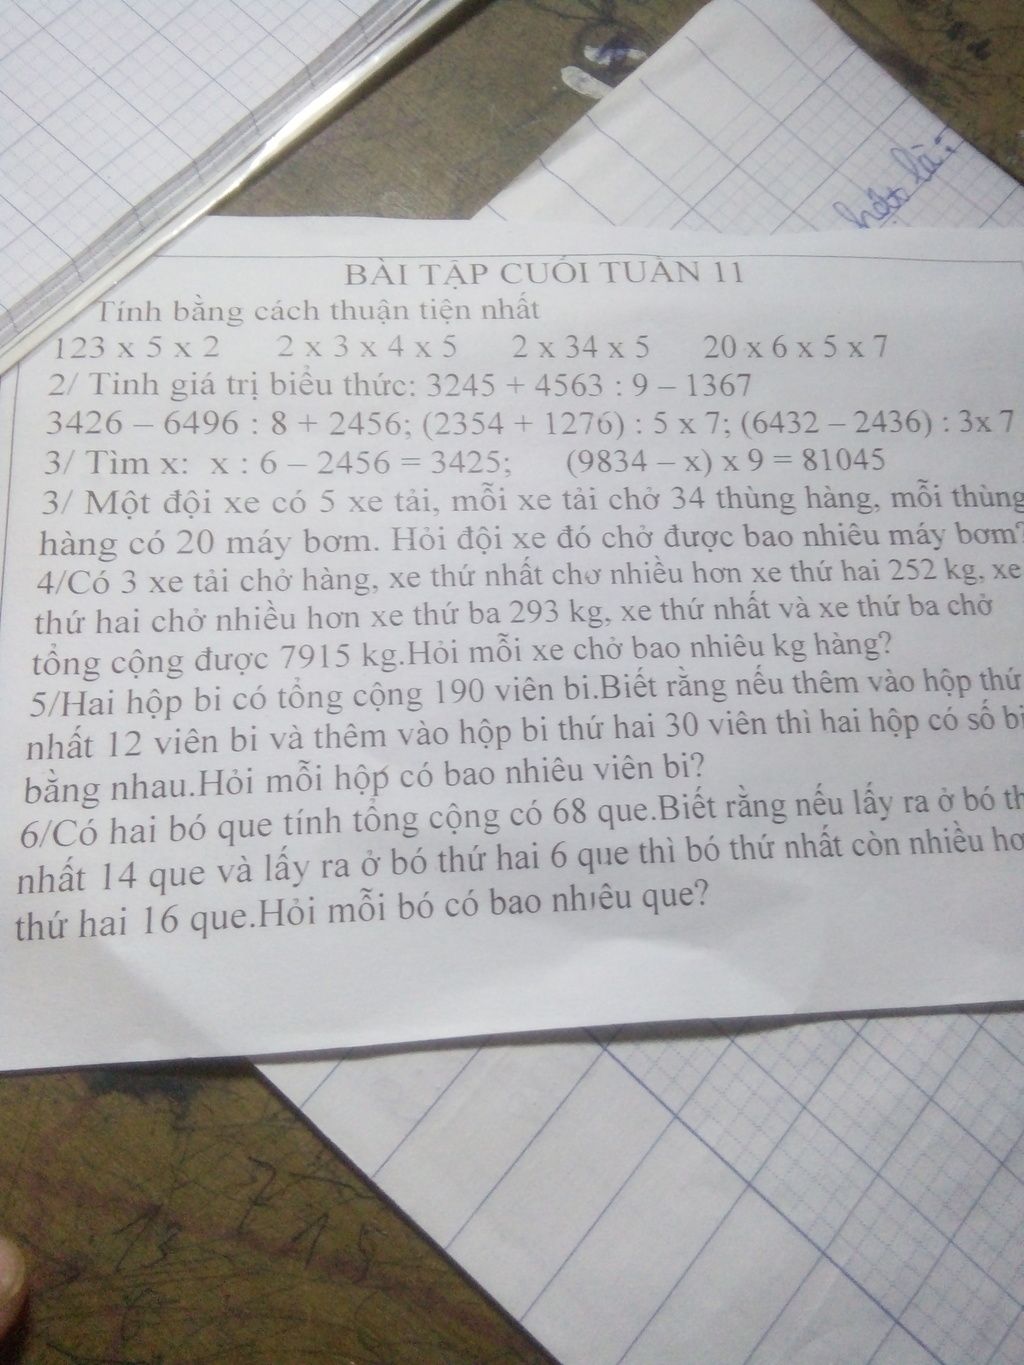 hộp là:
BÀI TẬP CUỐI TUẦN 11
Tính bằng cách thuận tiện nhất
123 x 5 x 2 2 x 3 x 4 x 5 2 x 34 x 5 20 x 6 x 5 x 7
2/ Tinh giá trị biểu thức: 3245 + 4563 : 9 – 1367
3426 – 6496 : 8 + 2456; (2354 + 1276) : 5 x 7; (6432 – 2436) : 3x 7
3/ Tìm x: x : 6 – 2456 = 3425; (9834 – x) x 9 = 81045
3/ Một đội xe có 5 xe tải, mỗi xe tải chở 34 thùng hàng, mỗi thùng
hàng có 20 máy bơm. Hỏi đội xe đó chở được bao nhiêu máy bơm?
4/Có 3 xe tải chở hàng, xe thứ nhất chở nhiều hơn xe thứ hai 252 kg, xe
thứ hai chở nhiều hơn xe thứ ba 293 kg, xe thứ nhất và xe thứ ba chở
tổng cộng được 7915 kg.Hỏi mỗi xe chở bao nhiêu kg hàng?
5/Hai hộp bi có tổng cộng 190 viên bi.Biết rằng nếu thêm vào hộp thứ
nhất 12 viên bi và thêm vào hộp bi thứ hai 30 viên thì hai hộp có số bi
bằng nhau.Hỏi mỗi hộp có bao nhiêu viên bi?
6/Có hai bó que tính tổng cộng có 68 que.Biết rằng nếu lấy ra ở bó th
nhất 14 que và lấy ra ở bó thứ hai 6 que thì bó thứ nhất còn nhiều hơ
thứ hai 16 que.Hỏi mỗi bó có bao nhiêu que?